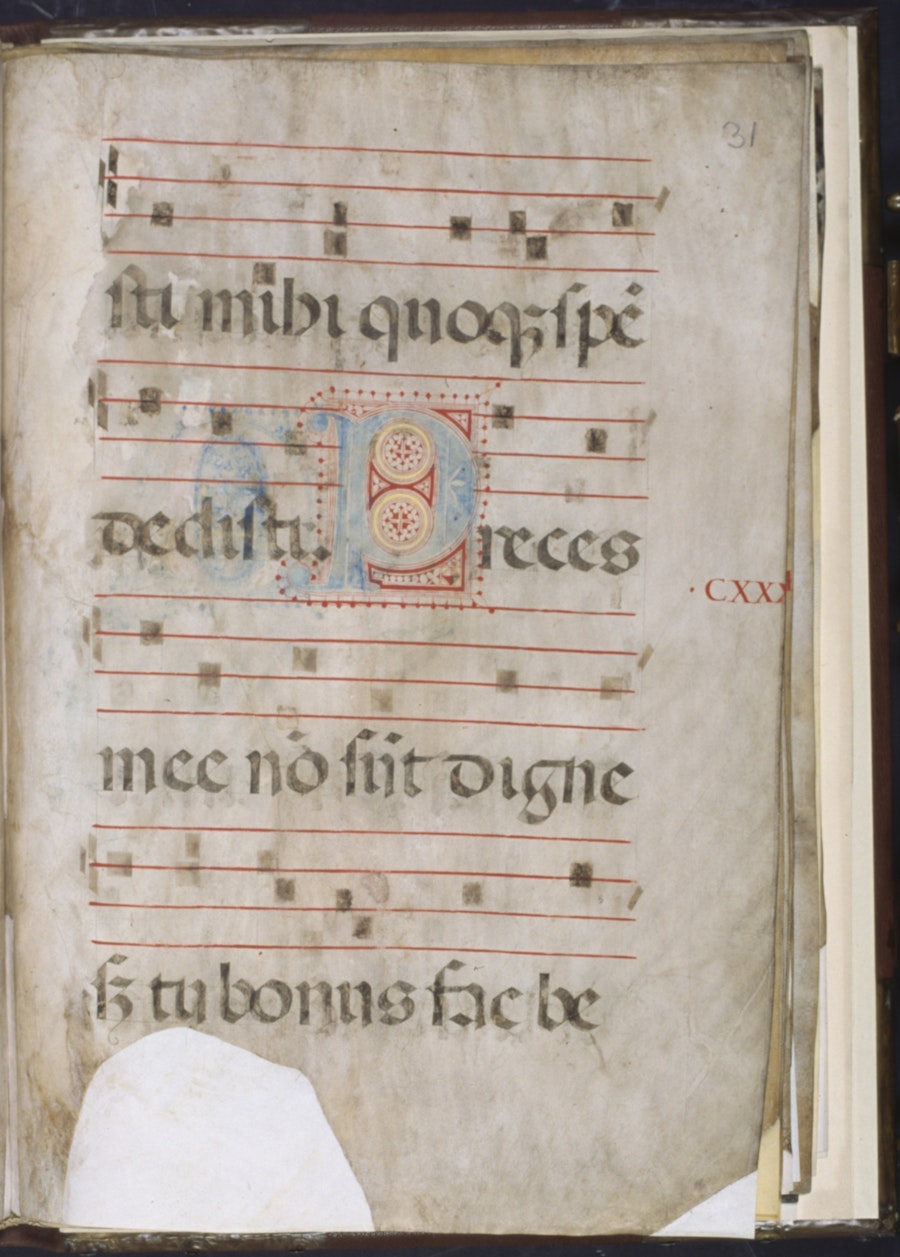 31
sti mihi quoqꝫ spē
dedisti. Preces
· CXXX
mee nō sūt digne
sꝫ tu bonus fac be